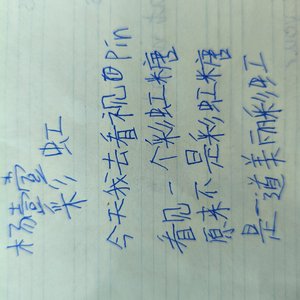 杨壹萱
彩虹
今天我去看视日pin
看见一个彩虹糖
原来不是彩虹糖
是一道美丽彩虹